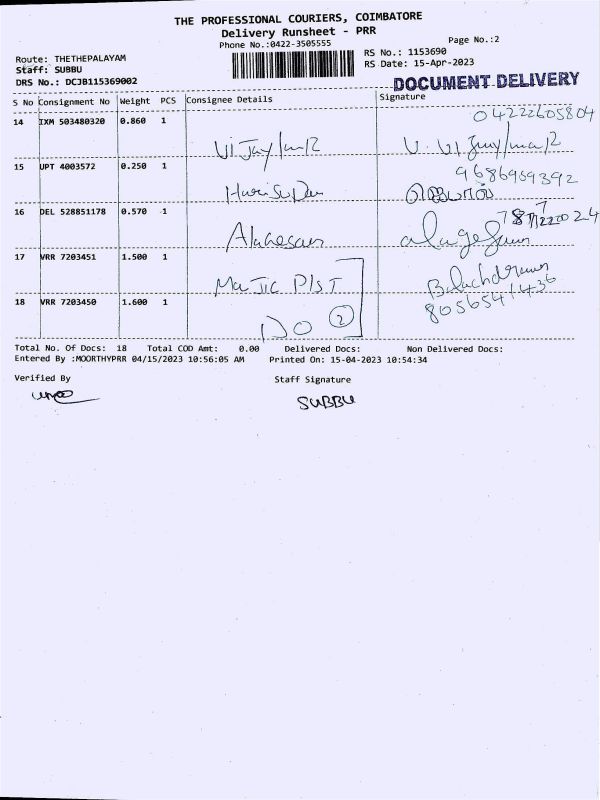 THE PROFESSIONAL COURIERS, COIMBATORE
Delivery Runsheet - PRR
Phone No.:0422-3505555
Page No.:2
Route: THETHEPALAYAM
RS No.: 1153690
Staff: SUBBU
RS Date: 15-Apr-2023
DRS No.: DCJB115369002
DOCUMENT DELIVERY
S No Consignment No Weight PCS Consignee Details Signature
04222605804
14 IXM 503480320 0.860 1
15 UPT 4003572 0.250 1
9686959392
16 DEL 528851178 0.570 1
17 VRR 7203451 1.500 1
18 VRR 7203450 1.600 1
DO 2
Total No. Of Docs: 18 Total COD Amt: 0.00 Delivered Docs: Non Delivered Docs:
Entered By :MOORTHYPRR 04/15/2023 10:56:05 AM Printed On: 15-04-2023 10:54:34
Verified By Staff Signature
SUBBU